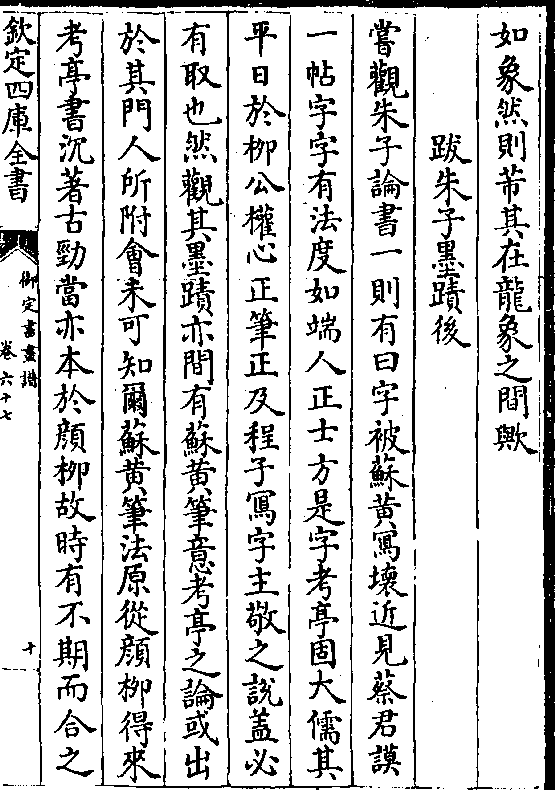 如象然則芾其在龍象之間歟
跋朱子墨蹟後
嘗觀朱子論書一則有曰字被蘇黃寫壞近見蔡君謨
一帖字字有法度如端人正士方是字考亭固大儒其
平日於柳公權心正筆正及程子寫字主敬之說蓋必
有取也然觀其墨蹟亦間有蘇黃筆意考亭之論或出
於其門人所附會未可知爾蘇黃筆法原從顏柳得來
考亭書沉著古勁當亦本於顏柳故時有不期而合之
欽定四庫全書
御定書畫譜
卷六十七
十